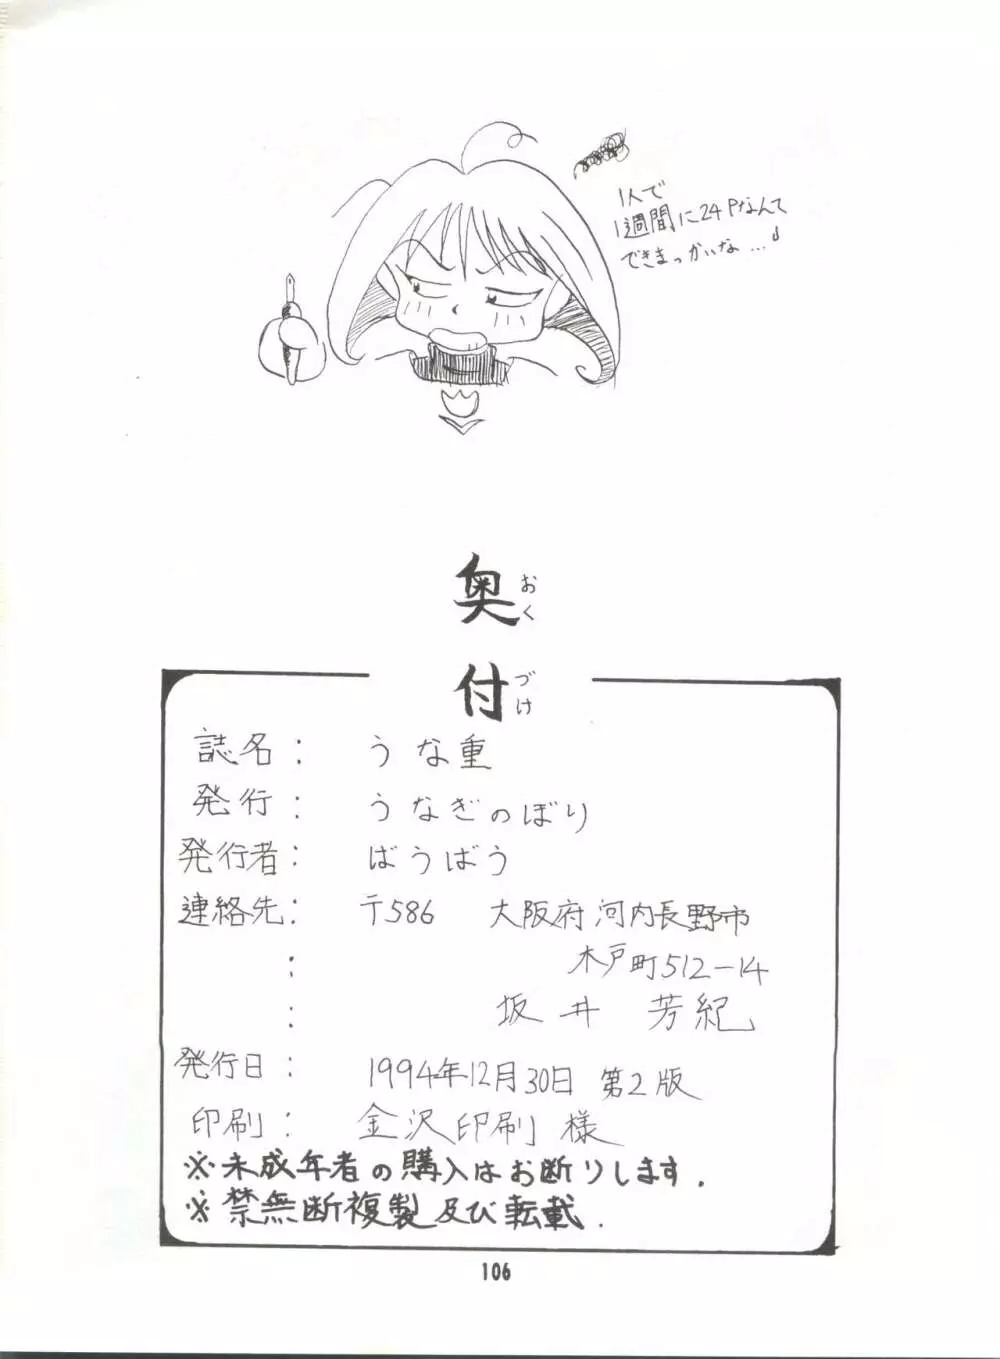 1人で
1週間に24Pなんて
できまっかいな…
奥付
おくづけ
誌名： うな重
発行： うなぎのぼり
発行者： ばうばう
連絡先： 〒586 大阪府河内長野市
： 木戸町512-14
： 坂井 芳紀
発行日： 1994年12月30日 第2版
印刷： 金沢印刷 様
※未成年者の購入はお断りします.
※禁無断複製及び転載.
106